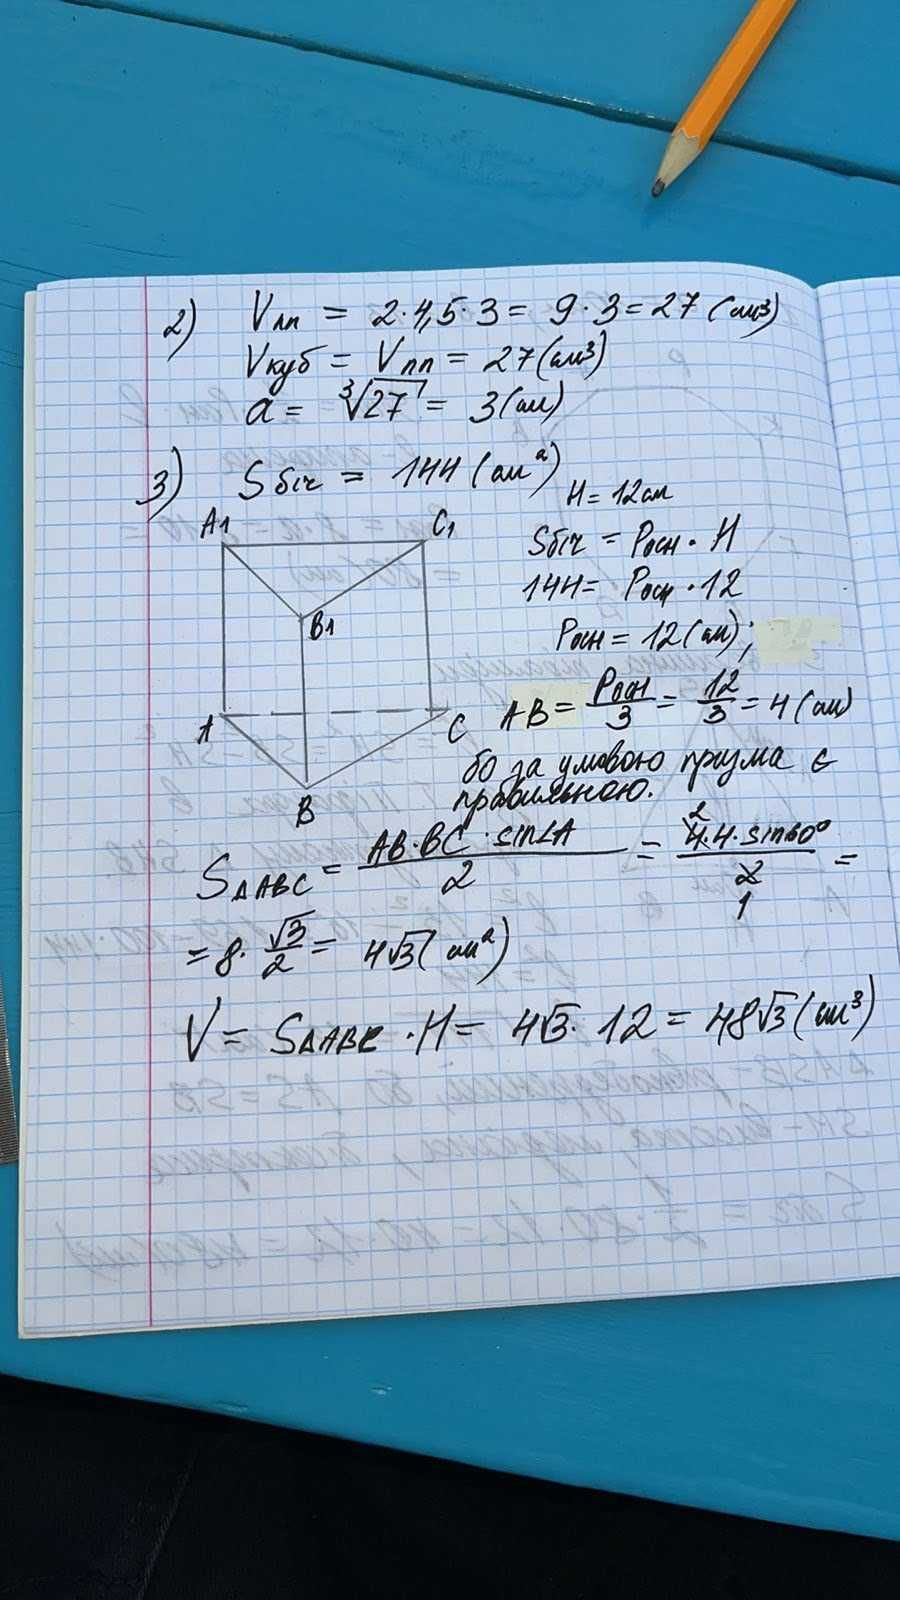 2) Vпп = 2·4,5·3 = 9·3 = 27 (см³)
Vкуб = Vпп = 27 (см³)
a = ³√27 = 3 (см)
3) Sбіч = 144 (см²)
H = 12 см
Sбіч = Pосн · H
144 = Pосн · 12
Pосн = 12 (см);
AB = Pосн/3 = 12/3 = 4 (см)
бо за умовою призма є
правильною.
A1 C1
B1
A C
B
S△ABC = AB·BC·sin∠A/2 = 4·4·sin60°/2 =
2
1
= 8 · √3/2 = 4√3 (см²)
V = S△ABC · H = 4√3 · 12 = 48√3 (см³)